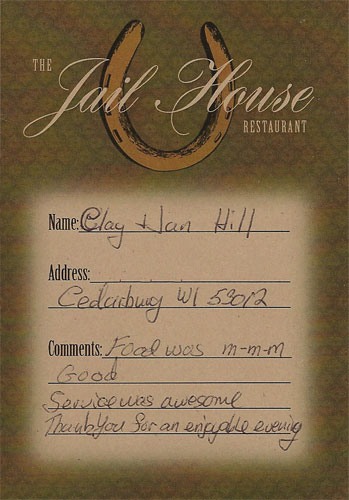 THE
Jail House
RESTAURANT
Name: Clay + Jan Hill
Address:
Cedarburg WI 53012
Comments: Food was m-m-m
Good
Service was awesome
Thank You for an enjoyable evening